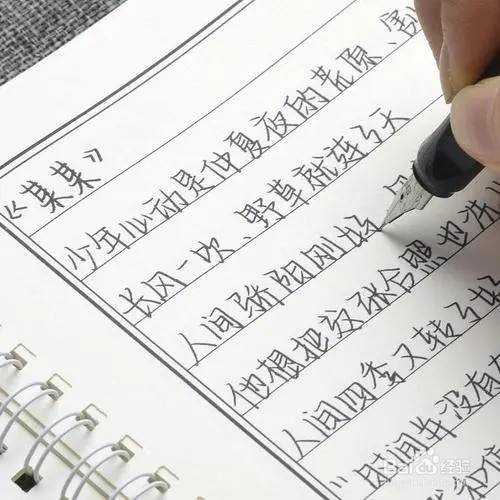 《某某》
少年心动是仲夏夜的荒原、割
长风一吹、野草就连了天
人间骄阳刚好
他想把这张合照也洗
人间四季又转了好
时间并没有
Baidu经验